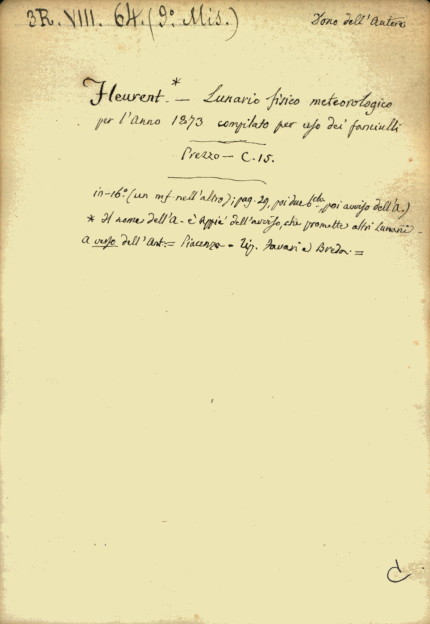 3R. VIII. 64. (9º Mis.)
Dono dell'Autore
Fleurent.* — Lunario fisico meteorologico
per l'Anno 1873 compilato per uso dei fanciulli
Prezzo — C. 15.
in-16º (un mf nell'altro); pag. 29, poi due poi avviso dell'A.)
* Il nome dell'A. è appiè dell'avviso, che promette altri Lunarii
a verso dell'Ant. = Piacenza = Tip. Favari e Breda =
C